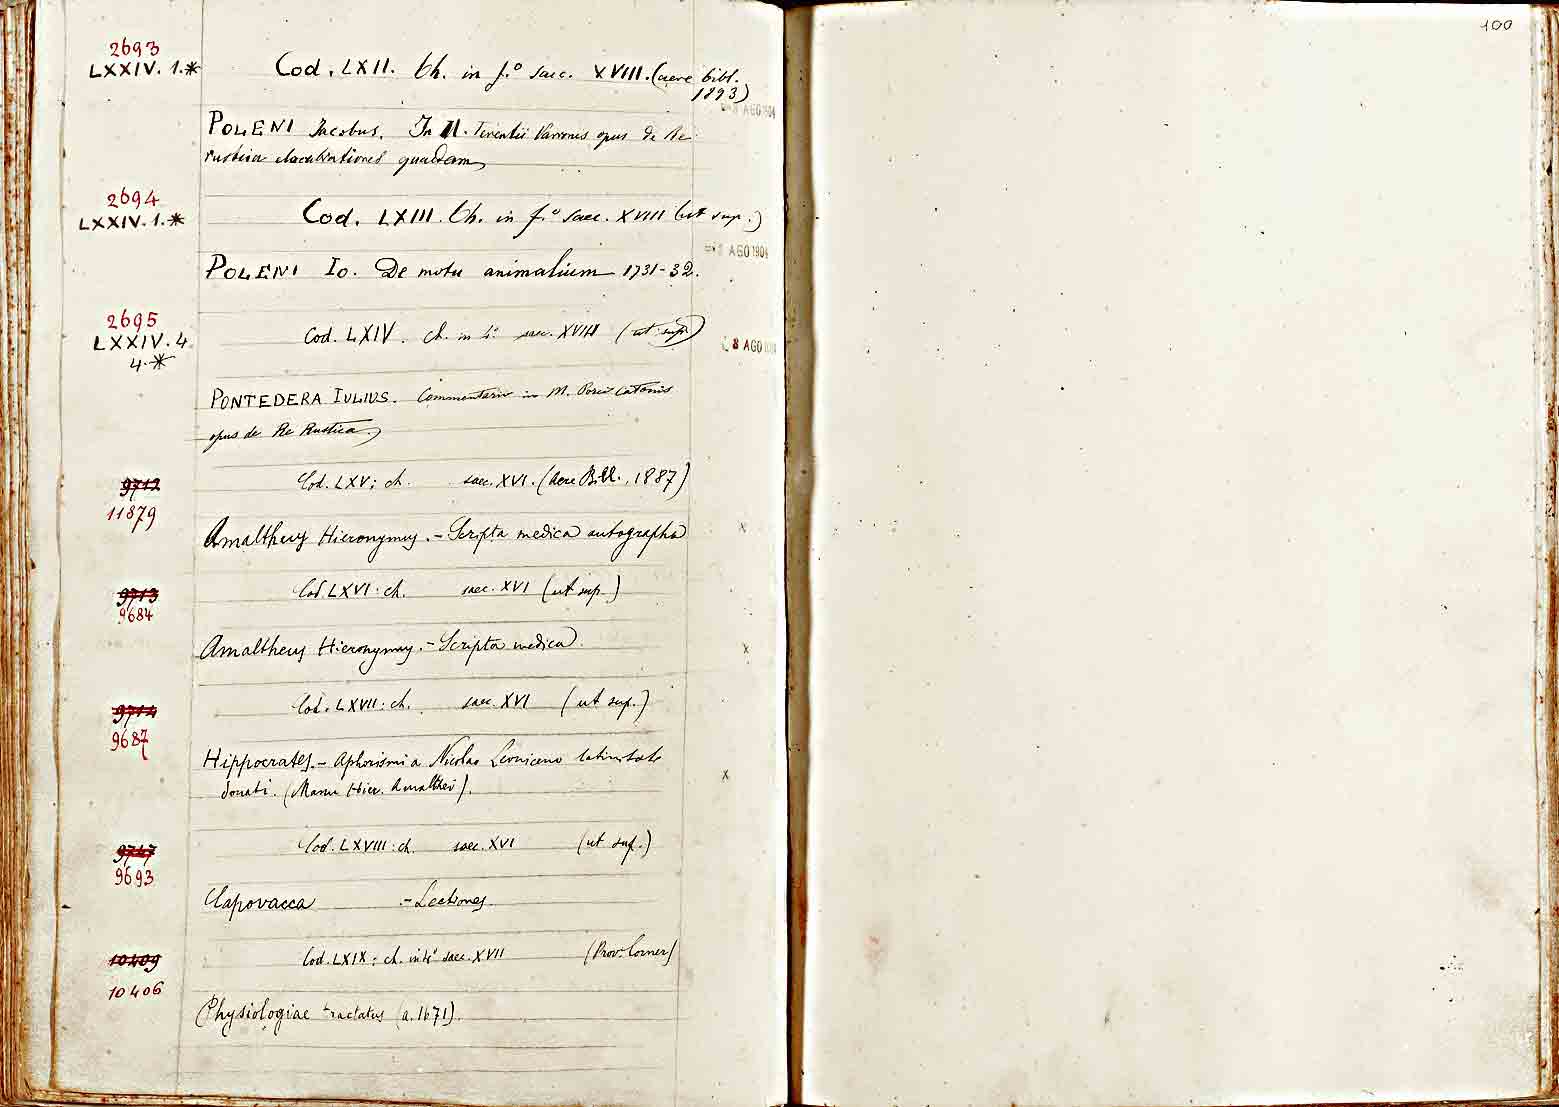 100
2693
LXXIV. 1.*
Cod. LXII. Ch. in f.º saec. XVIII. (aere bibl.
1893)
8 AGO 1904
POLENI Jacobus. In M. Terentii Varronis opus de Re
rustica elucubrationes quaedam
2694
LXXIV. 1.*
Cod. LXIII. Ch. in f.º saec. XVIII (ut sup.)
8 AGO 1904
POLENI Io. De motu animalium 1731-32.
2695
LXXIV. 4
4.*
Cod. LXIV. ch. in 4º saec. XVIII (ut sup.)
8 AGO
PONTEDERA IULIUS. Commentaria in M. Porcii Catonis
opus de Re Rustica.
9712
11879
Cod. LXV: ch. saec. XVI. (Aere Bibl. 1887)
Amaltheus Hieronymus. - Scripta medica autographa
x
9713
9684
Cod LXVI: ch. saec. XVI (ut sup.)
Amaltheus Hieronymus. - Scripta medica.
x
9714
9687
Cod. LXVII: ch. saec. XVI (ut sup.)
Hippocrates. - Aphorismi a Nicolao Leoniceno latinitate
donati. (Manu Hier. Amalthei).
x
9747
9693
Cod. LXVIII: ch. saec. XVI (ut sup.)
Capovacca - Lectiones
10409
10406
Cod. LXIX: ch. in 4º saec. XVII (Prov. Corner)
Physiologiae tractatus (a. 1671).